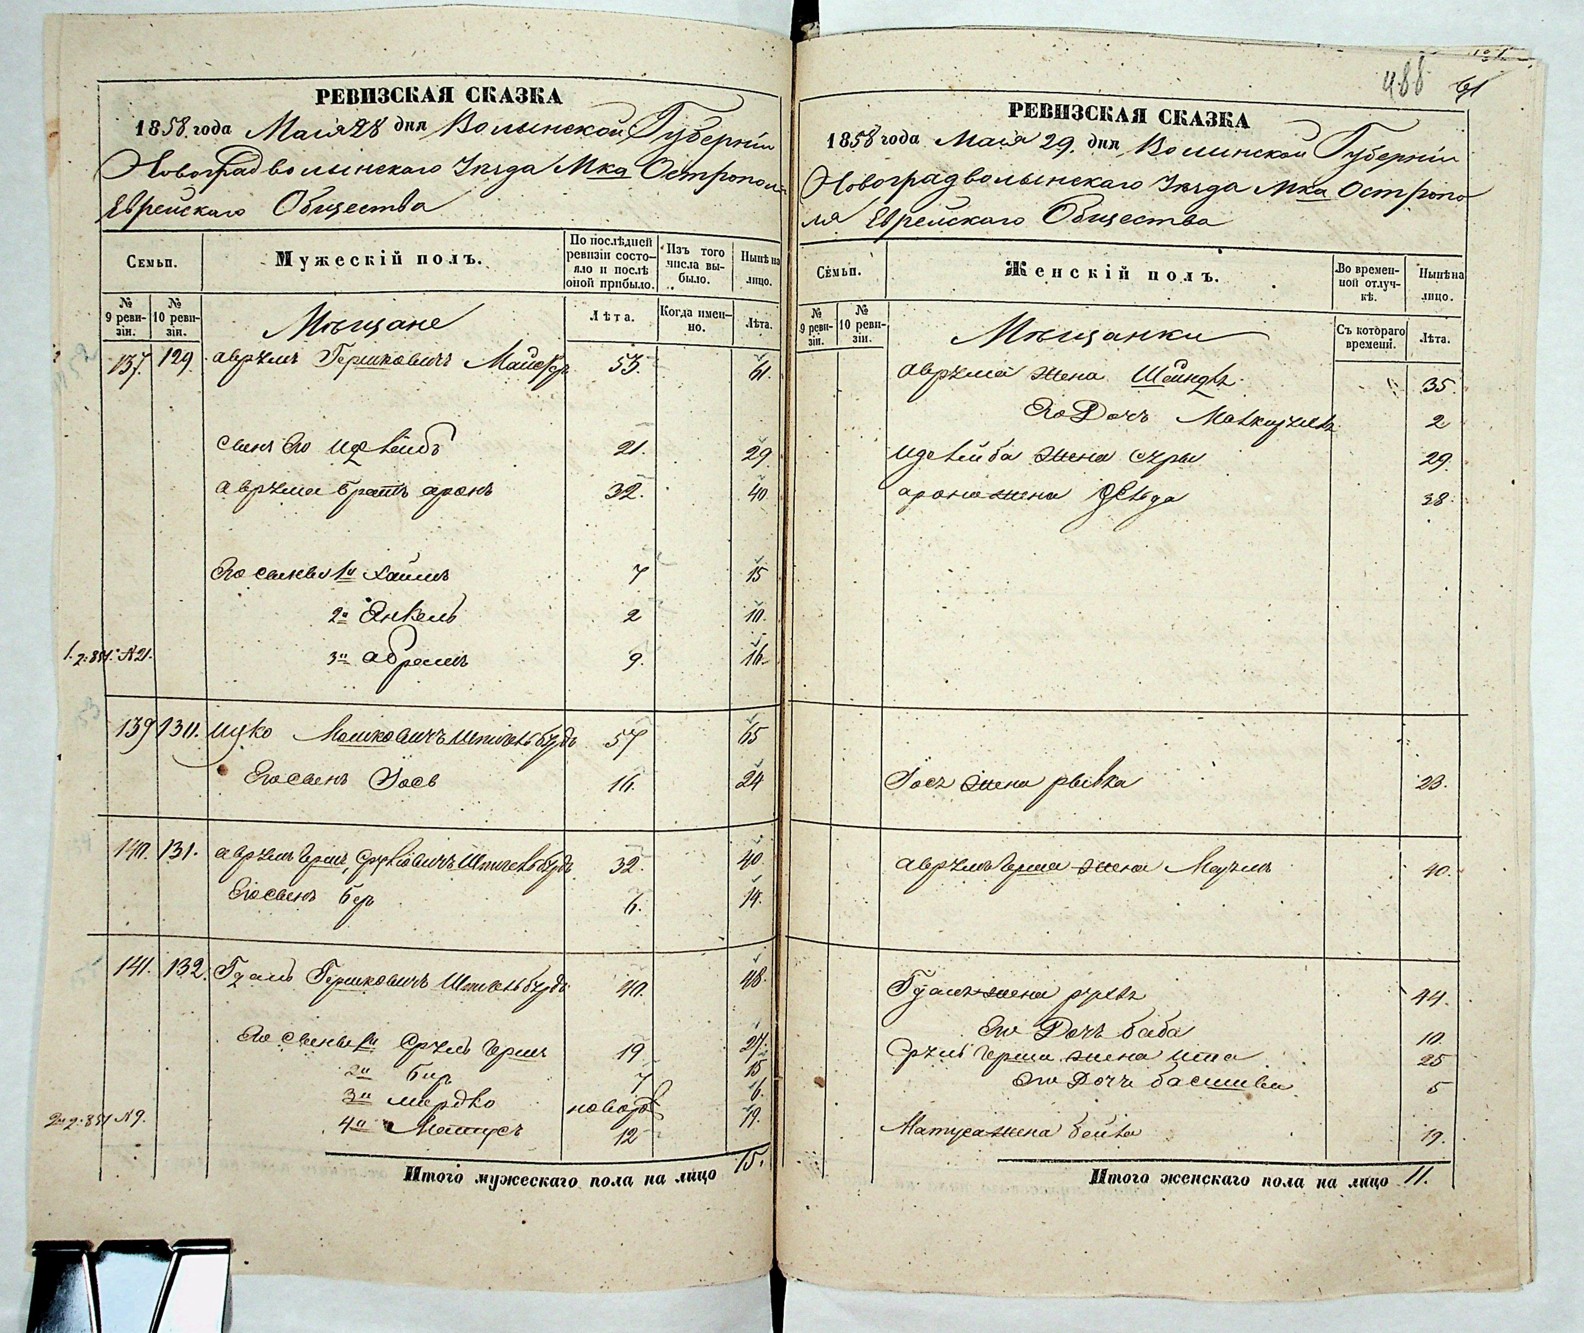 РЕВИЗСКАЯ СКАЗКА
1858. года Маія 28 дня Волынской Губерніи
Новоградволынскаго Уѣзда Мка Острополя
Еврейскаго Общества
Семьи.
Мужескій полъ.
По послѣдней ревизіи состояло и послѣ оной прибыло.
Изъ того числа выбыло.
Нынѣ на лицо.
№ 9 ревизіи.
№ 10 ревизіи.
Мѣщане
Лѣта.
Когда именно.
Лѣта.
137. 129. Аврумъ Гершковичъ 53. 61.
сынъ его 21. 29.
Аврума братъ Аронъ 32. 40
Его сыновья 1й Хаимъ 7 15
2й Янкель 2 10.
3й Абрамъ 9. 16.
139 130. Ицко Мошковичъ 57 65
Его сынъ Іось 16. 24
140. 131. Аврумъ Гершъ 32. 40
Его сынъ Беръ 6. 14.
141. 132. Гершковичъ 40. 48.
Его сыновья 1й Сруль Гершъ 19 27.
2й Беръ 7 15
3й Мордко новорож 6.
№ 9. 4й Матусъ 12 19.
Итого мужескаго пола на лицо 15.
488
61
РЕВИЗСКАЯ СКАЗКА
1858 года Маія 29. дня Волынской Губерніи
Новоградволынскаго Уѣзда Мка Острополя
Еврейскаго Общества
Семьи.
Женскій полъ.
Во временной отлучкѣ.
Нынѣ на лицо.
№ 9 ревизіи.
№ 10 ревизіи.
Мѣщанки
Съ котораго времени.
Лѣта.
Аврума жена Шейндля 35.
Его Дочь 2
жена Суры 29.
Арона жена 38
Іося жена Рывка 23.
Аврумъ Герша жена 40.
жена 44.
Его Дочь Баба 10.
Сруль Герша жена Ита 25
Его Дочь Басшива 5
Матуса жена Бейла 19.
Итого женскаго пола на лицо 11.